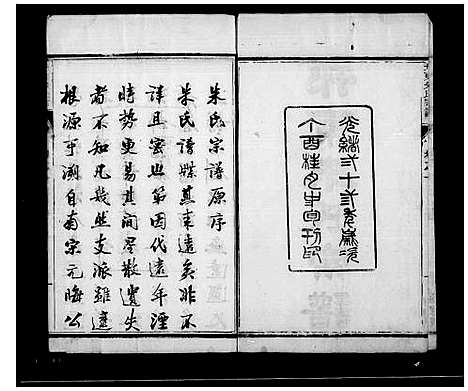 光緒二十三年歲次
丁酉桂月中旬刊印
朱氏宗譜原序
朱氏譜牒其來遠矣非不
詳且密也第因代遠年湮
時勢更易其間聚散遺失
者不知凡幾然支派雖遠
根源可溯自南宋元晦公